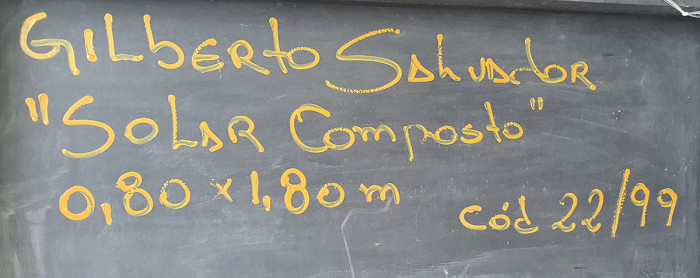 GILBERTO SALVADOR
"SOLAR Composto"
0,80 x 1,80 m
cód 22/99